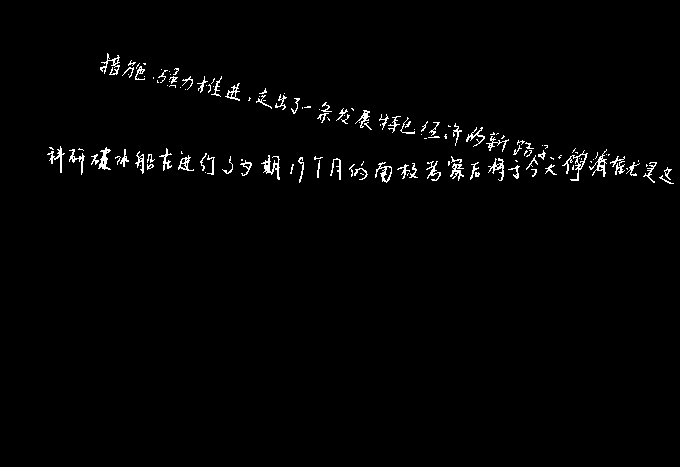 措施,强力推进,走出了一条发展特色经济的新路子
科研破冰船在进行了为期19个月的南极考察后将于今天